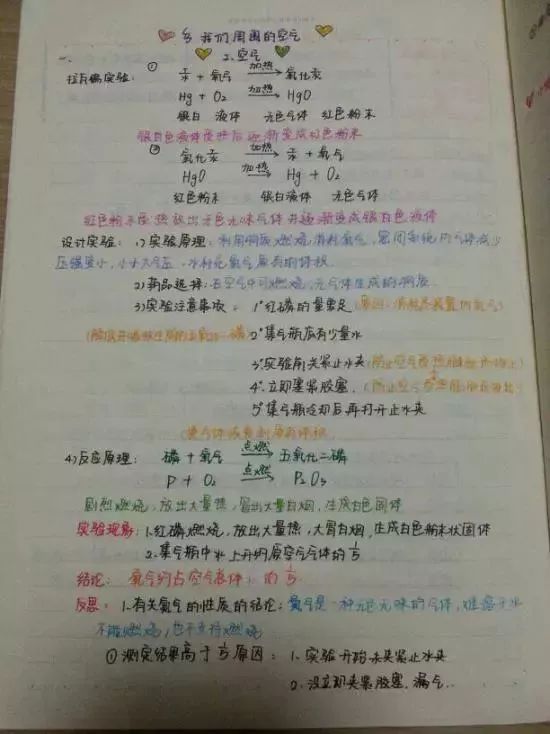 我们周围的空气
2.空气
一.
拉瓦锡实验: ① 汞 + 氧气 加热→ 氧化汞
Hg + O₂ 加热→ HgO
银白 液体 无色气体 红色粉末
银白色液体受热后逐渐变成红色粉末
② 氧化汞 加热→ 汞 + 氧气
HgO 加热→ Hg + O₂
红色粉末 银白液体 无色气体
红色粉末受热放出无色无味气体并逐渐变成银白色液体
设计实验: 1)实验原理: 利用物质燃烧消耗氧气, 密闭系统内气体减少
压强变小, 小于大气压, 水补充氧气原有的体积
2)药品选择: 在空气中可燃烧, 无气体生成的物质
3)实验注意事项: 1°红磷的量要足
2°集气瓶底有少量水
3°实验前夹紧止水夹
4°立即塞紧胶塞
5°集气瓶冷却后再打开止水夹
使气体恢复到原有体积
4)反应原理: 磷 + 氧气 点燃→ 五氧化二磷
P + O₂ 点燃→ P₂O₅
剧烈燃烧, 放出大量热, 冒出大量白烟, 生成白色固体
实验现象: 1.红磷燃烧, 放出大量热, 大冒白烟, 生成白色粉末状固体
2.集气瓶中水上升约原空气气体的1/5
结论: 氧气约占空气总体积的1/5
反思: 1.有关氮气的性质的结论: 氮气是一种无色无味的气体, 难溶于水
不能燃烧, 也不支持燃烧
① 测定结果高于1/5原因: 1.实验开始未夹紧止水夹
2.没立即夹紧胶塞, 漏气